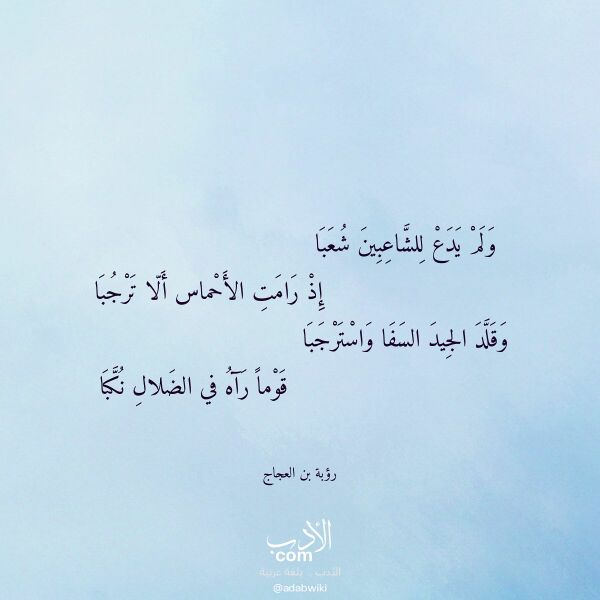 وَلَمْ يَدَعْ لِلشَّاعِبِينَ شُعَبَا
إِذْ رَامَتِ الأَحْماس أَلّا تَرْجُبَا
وَقَلَّدَ الجِيدَ السَفَا وَاسْتَرْجَبَا
قَوْماً رَآهُ في الضَلالِ نُكَّبَا
رؤبة بن العجاج
الأدب
com
الأدب .. بلغة عربية
@adabwiki